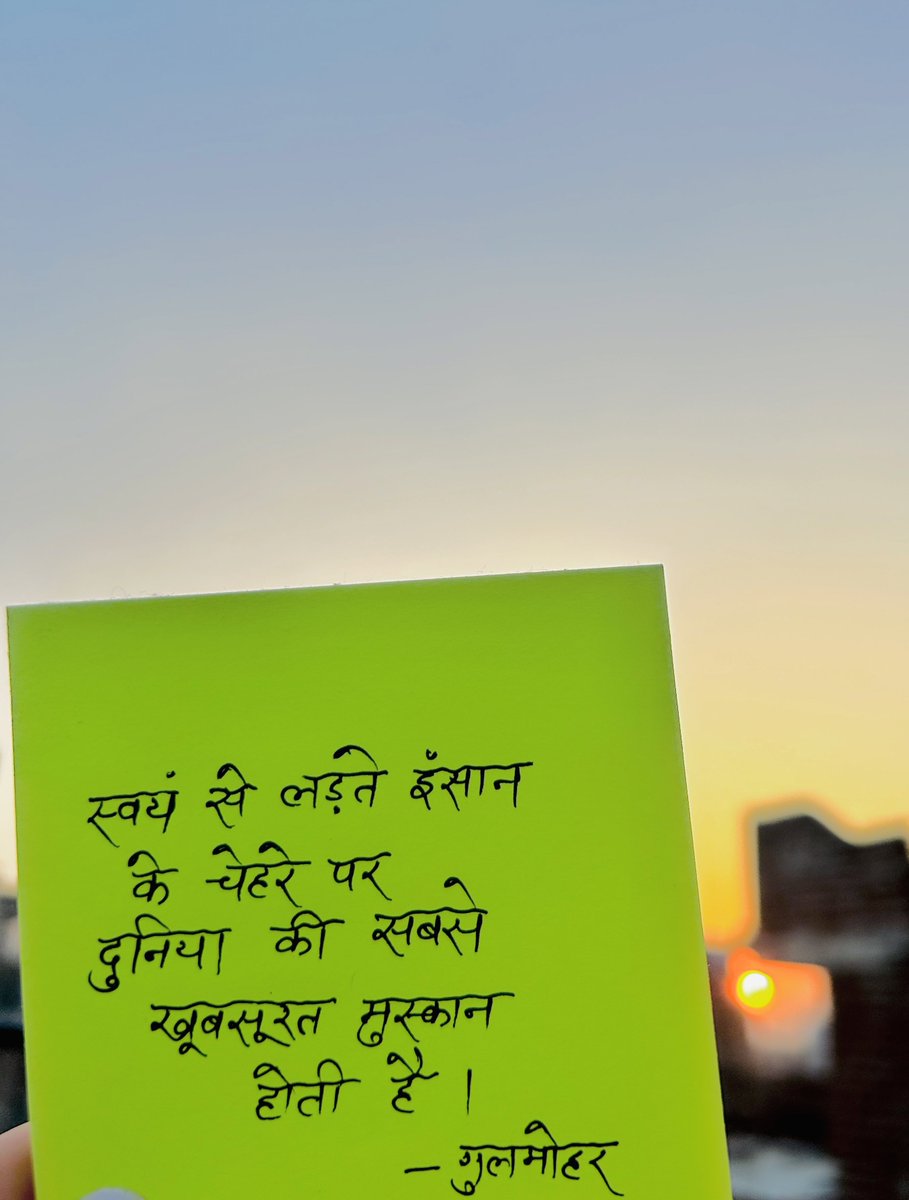 स्वयं से लड़ते इंसान
के चेहरे पर
दुनिया की सबसे
खूबसूरत मुस्कान
होती है।
– गुलमोहर